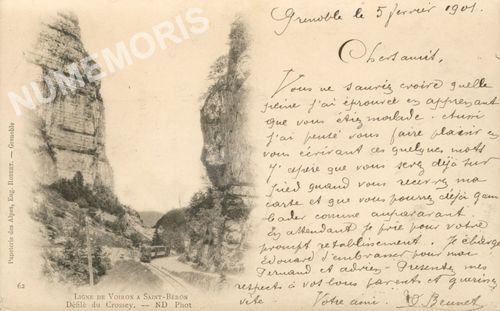 NUMEMORIS
Grenoble le 5 fevrier 1901.
Vous ne sauriez croire quelle
peine j'ai éprouvé en apprenant
que vous étiez malade. Aussi
j'ai pensé vous faire plaisir en
vous écrivant ces quelques mots
J'espère que vous serez déjà sur
pied quand vous recevrez ma
carte et que vous pourrez déjà gam-
bader comme auparavant.
En attendant je prie pour votre
prompt retablissement. Je charge
Edouard d'embrasser pour moi
Fernand et Presentez mes
respects à vos bons parents et guérissez
vite. Votre ami. D. Brunet
Papeterie des Alpes, Eug. ROBERT. — Grenoble
62
LIGNE DE VOIRON A SAINT-BÉRON
Défilé du Crossey. — ND Phot